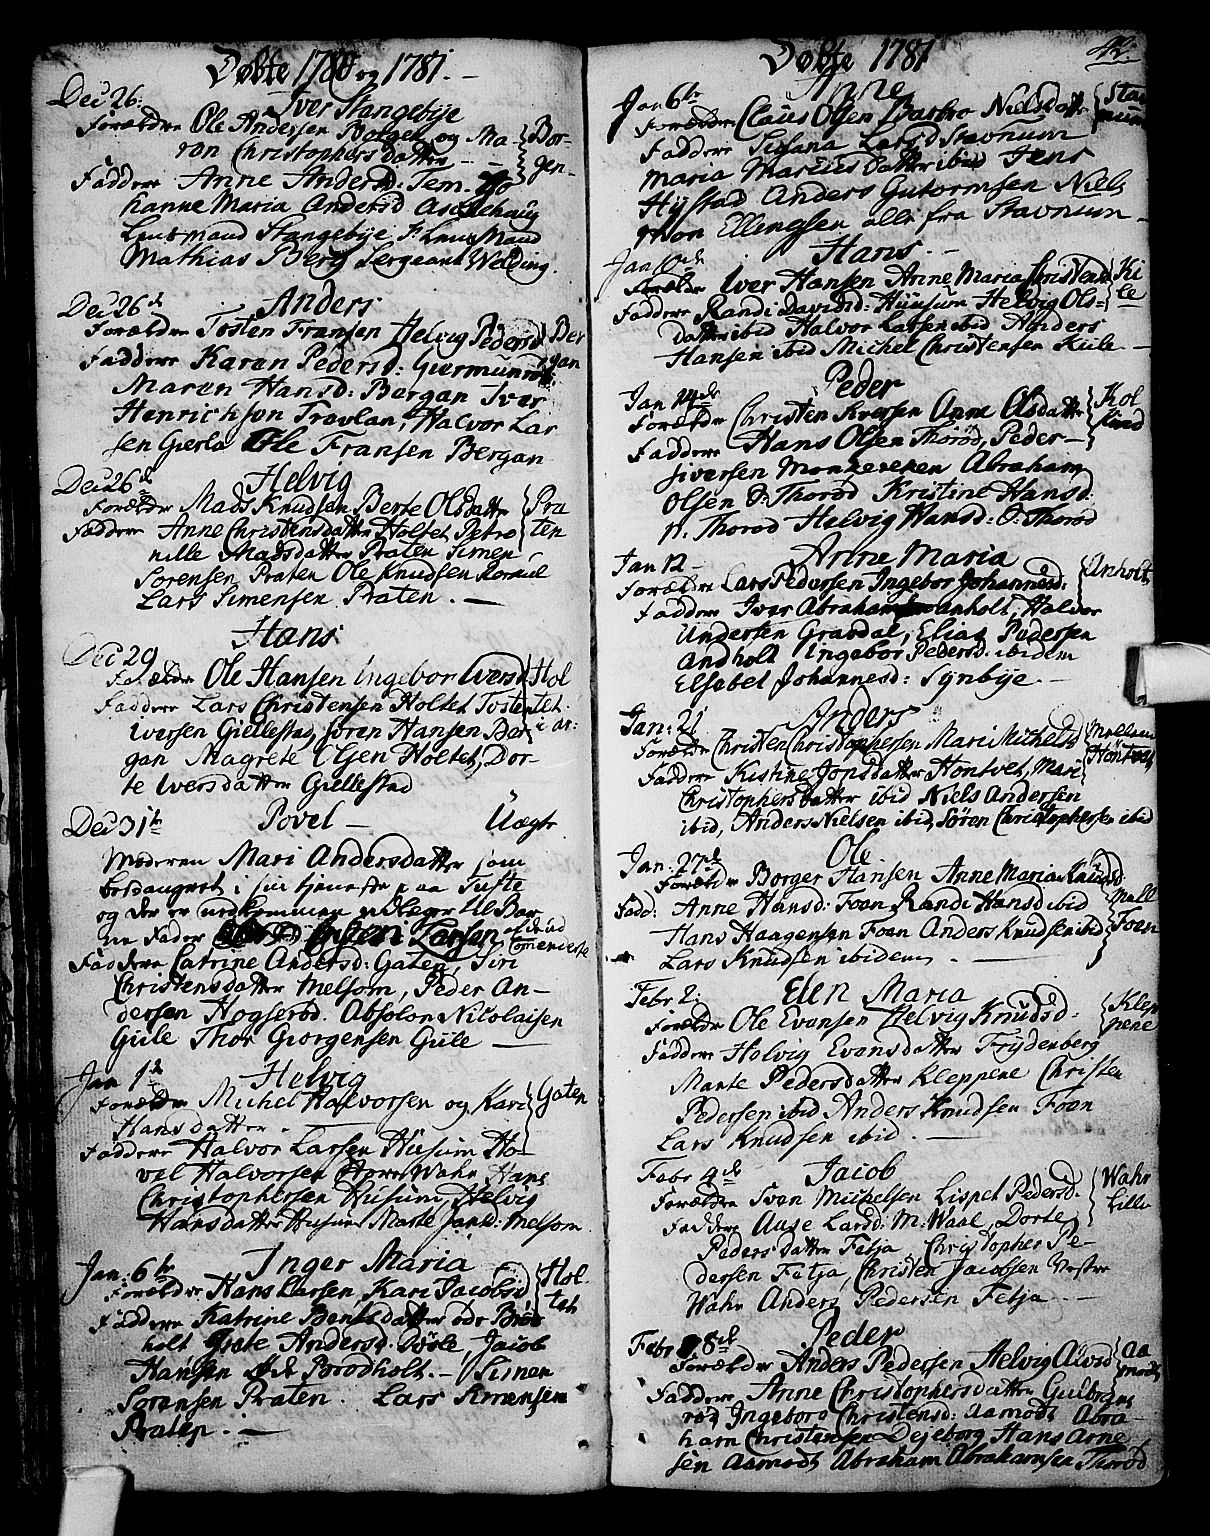 Døbte 1780 og 1781. –
Dec 26. Iver Stangebÿe
Forældre Ole Andersen Borgen og Ma- Bor-
ren Christophersdatter – – gen-
Faddere Anne Andersd: Tem. Jo
hanne Maria Andersd Aschehaug
Leutmand Stangebÿe Fr Leut Mand
Mathias Berg Sergeant Welding.
Dec 26 d Anders
Forældre Tosten Fransen Helvig Pedersd Ber
Faddere Karen Pedersd: Giermundrød gan
Maren Hansd: Bergan Iver
Henrichson Travlan, Halvor Lar
sen Gierla Ole Fransen Bergan
Dec 26 d Helvig
Forældre Mads Knudsen Berte Olsdatter Pra
Faddere Anne Christensdatter Holtet Petro ten
nille Madsdatter Praten Simen
Sörensen Praten Ole Knudsen
Lars Simensen Praten. –
Hans
Dec 29
Forældre Ole Hansen Ingebor Iversd Hol
Faddere Lars Christensen Holtet Tosten tet
iversen Giellestad, Sören Hansen Ber i ar:
gan Magrete Olsen Holtet, Dor-
te Iversdatter Giellestad
Dec 31 te Povel – Uægte
Moderen Mari Andersdatter som
besvangret i sin tjeneste paa Tufte
og der er nedkommen udlægger til Bar
ne Fader Jensen Larsen af de ud
Comenderte
Faddere Catrine Andersd: Gaten, Siri
Christensdatter Melsom, Peder An-
dersen Hogserød. Absolon Nicolaisen
Güle Thor Giorgensen Güle –
Jan 1 te Helvig
Forældre Michel Halvorsen og Kari Gaten
Hansdatter. –
Faddere Halvor Larsen Hüsüm Ho-
vel Halvorsen Store Wahr, Hans
Christophersen Hüsüm, Helvig
Hansdatter Hüsüm Marte Jansd: Melsom
Jan: 6 te Inger Maria
Forældre Hans Larsen, Kari Jacobsd Hol-
Faddere Katrine Bentsdatter öde Brod tet
holt Grete Andersd: Bösle, Jacob
Hansen Øde Brodholt. – Simen
Sørensen Praten. Lars Simensen
Praten. –
Døbte 1781 42.
Jan 6 te Anne
Forældre Claus Olsen Barbro Nielsdatter Stav
Faddere Sigana Larsd Stavnum num
Maria Mariusdatter ibid Jens
Hÿstad Anders Gutormsen Niels
Mon Ellingsen alle fra Stavnum –
Hans. –
Jan 10 de
Forældre Iver Hansen Anne Maria Christensd Ki
Faddere Randi Davidsd: Hunsum Helvig Ols= le
datter ibid Halvor Larsen ibid Anders
Hansen ibid Michel Christensen Kiile –
Peder
Jan 14 de
Forældre Christen Iversen Anne Olsdatter Kol
Faddere Hans Olsen Thorød, Peder – kind
siversen Monkereken Abraham
Olsen Ø: Thorød Kristine Hansd:
N. Thorød Helvig Hansd: Ø: Thorød
Jan 12 – Anne Maria
Forældre Lars Pedersen Ingebor Johannesd: Anholt
Faddere Iver Abrahamsen anholt, Halvor
Andersen Gravdal, Elias Pedersen
Andholt Ingebor Pedersd: ibidem
Elsebet Johannesd: Sÿnbÿe. –
Jan: 21 Anders
Forældre Christen Christophersen Mari Michelsd Mellem
Faddere Kistine Jonsdatter Hontvet, Mari Höntvet
Christophersdatter ibid Niels Andersen
ibid, Anders Nielsen ibid, Sören Christophersen ibid
Jan: 27 de Ole
Forældre Borger Hansen Anne Maria Knudsd
Fadd: Anne Hansd: Foan Randi Hansd ibid Mell
Hans Haagensen Foan Anders Knudsen ibid Foen
Lars Knudsen ibidem. –
Febr 2: Elen Maria
Forældre Ole Evensen Helvig Knudsd. Klep
Faddere Holvig Evensdatter Frÿdenberg pene
Marte Pedersdatter Kleppene Christen
Pedersen ibid Anders Knudsen Foen
Lars Knudsen ibid. –
Febr 9 de Jacob
Forældre Sven Michelsen Lispet Pedersd. Wahr
Faddere Aase Larsd: M: Waal, Dorte Lille
Pedersdatter Fetja, Christopher Pe-
dersen Fetja, Christen Jacobsen Vestre
Wahr Anders Pedersen Fetja. –
Febr 8 de Peder
Forældre Anders Pedersen Helvig Alvsd Aa
Faddere Anne Christophersdatter Gulbrans modt
rød Ingeborg Christensd: Aamodt Abra-
ham Christensen Dejeborg Hans Arne
sen Aamodt Abraham Abrahamsen Thorød